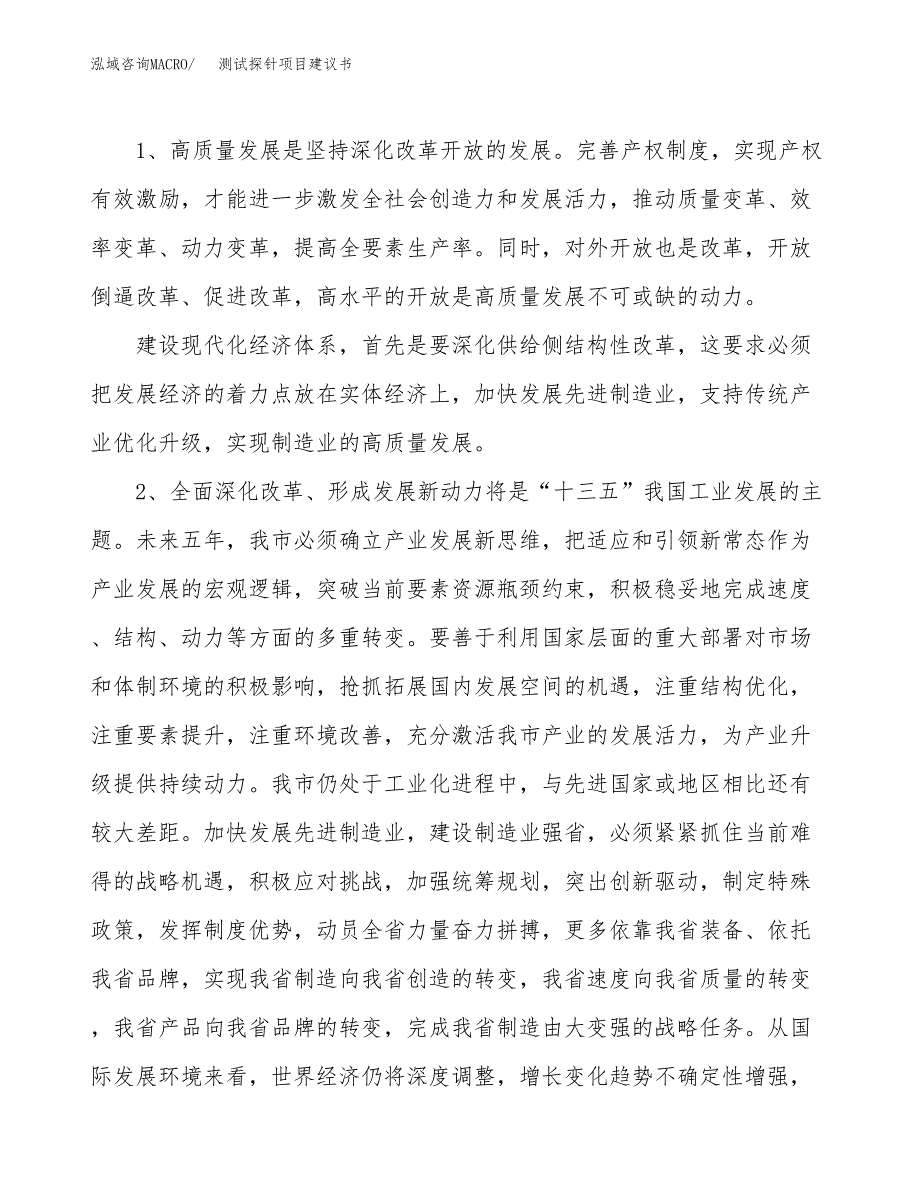 泓域咨询MACRO/ 测试探针项目建议书
1、高质量发展是坚持深化改革开放的发展。完善产权制度，实现产权
有效激励，才能进一步激发全社会创造力和发展活力，推动质量变革、效
率变革、动力变革，提高全要素生产率。同时，对外开放也是改革，开放
倒逼改革、促进改革，高水平的开放是高质量发展不可或缺的动力。
建设现代化经济体系，首先是要深化供给侧结构性改革，这要求必须
把发展经济的着力点放在实体经济上，加快发展先进制造业，支持传统产
业优化升级，实现制造业的高质量发展。
2、全面深化改革、形成发展新动力将是“十三五”我国工业发展的主
题。未来五年，我市必须确立产业发展新思维，把适应和引领新常态作为
产业发展的宏观逻辑，突破当前要素资源瓶颈约束，积极稳妥地完成速度
、结构、动力等方面的多重转变。要善于利用国家层面的重大部署对市场
和体制环境的积极影响，抢抓拓展国内发展空间的机遇，注重结构优化，
注重要素提升，注重环境改善，充分激活我市产业的发展活力，为产业升
级提供持续动力。我市仍处于工业化进程中，与先进国家或地区相比还有
较大差距。加快发展先进制造业，建设制造业强省，必须紧紧抓住当前难
得的战略机遇，积极应对挑战，加强统筹规划，突出创新驱动，制定特殊
政策，发挥制度优势，动员全省力量奋力拼搏，更多依靠我省装备、依托
我省品牌，实现我省制造向我省创造的转变，我省速度向我省质量的转变
，我省产品向我省品牌的转变，完成我省制造由大变强的战略任务。从国
际发展环境来看，世界经济仍将深度调整，增长变化趋势不确定性增强，